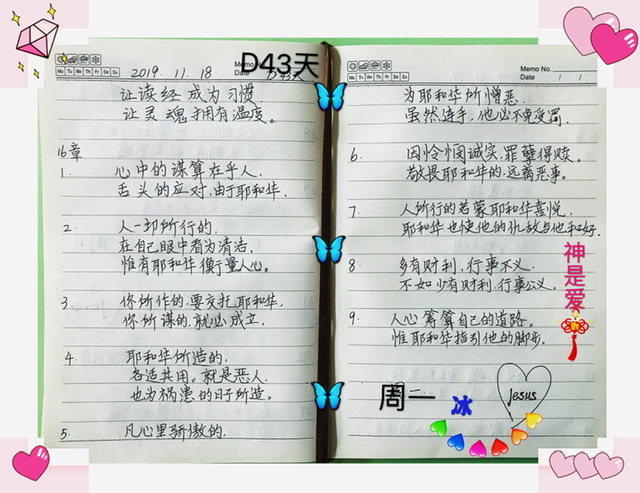 Memo No.
Mo Tu We Th Fr Sa Su
Date
2019. 11. 18
D43天
让读经成为习惯
让灵魂拥有温度。
16章
1. 心中的谋算在乎人.
舌头的应对,由于耶和华.
2. 人一切所行的,
在自己眼中看为清洁.
惟有耶和华衡量人心。
3. 你所作的,要交托耶和华,
你所谋的,就必成立.
4. 耶和华所造的,
各适其用。就是恶人,
也为祸患的日子所造。
5. 凡心里骄傲的,
Mo Tu We Th Fr Sa Su
Memo No.
Date / /
为耶和华所憎恶.
虽然连手,他必不免受罚.
6. 因怜悯诚实,罪孽得赎。
敬畏耶和华的,远离恶事。
7 人所行的若蒙耶和华喜悦,
耶和华也使他的仇敌与他和好.
8 多有财利,行事不义.
不如少有财利,行事公义。
9. 人心筹算自己的道路。
惟耶和华指引他的脚步。
神是爱
周一
冰
Jesus